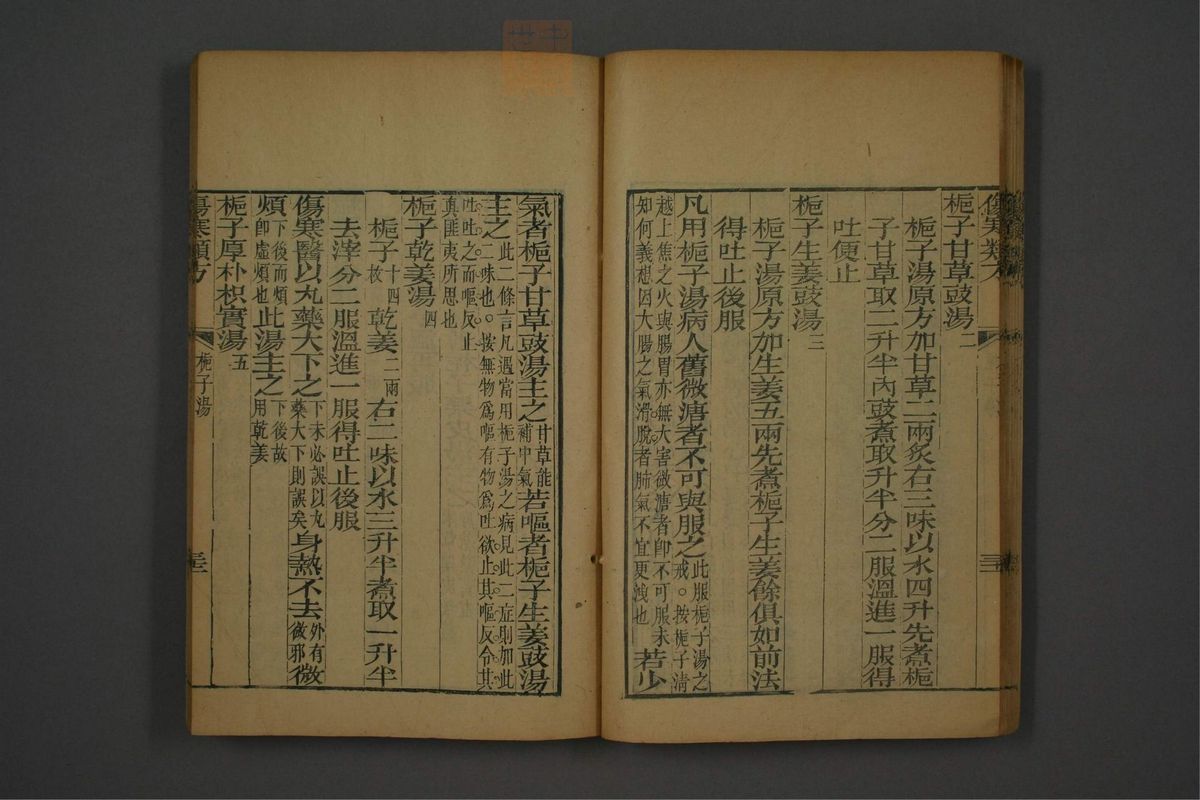 傷寒類方
梔子甘草豉湯二
梔子湯原方加甘草二兩炙右三味以水四升先煮梔
子甘草取二升半內豉煮取升半分二服溫進一服得
吐便止
梔子生姜豉湯三
梔子湯原方加生姜五兩先煮梔子生姜餘俱如前法
得吐止後服
凡用梔子湯病人舊微溏者不可與服之此服梔子湯之戒。按梔子清越上焦之火與腸胃亦無大害微溏者卽不可服未知何義想因大腸之氣滑脫者肺氣不宜更洩也若少
氣者梔子甘草豉湯主之甘草能補中氣若嘔者梔子生姜豉湯
主之此二條言凡遇當用梔子湯之病見此二症則加此二味也。按無物爲嘔有物爲吐欲止其嘔反令其吐吐之而嘔反止眞匪夷所思也
梔子乾姜湯四
梔子十四枚乾姜二兩右二味以水三升半煮取一升半
去滓分二服溫進一服得吐止後服
傷寒醫以丸藥大下之下未必誤以丸藥大下則誤矣身熱不去外有微邪微
煩下後而煩卽虛煩也此湯主之下後故用乾姜
梔子厚朴枳實湯五
傷寒類方
梔子湯
三三